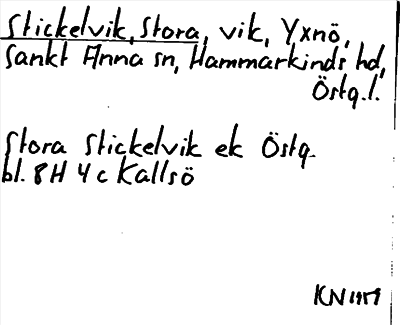 Stickelvik, Stora, vik, Yxnö,
Sankt Anna sn, Hammarkinds hd,
Östg.l.
Stora Stickelvik ek Östg.
bl. 8H 4c Kallsö
KN